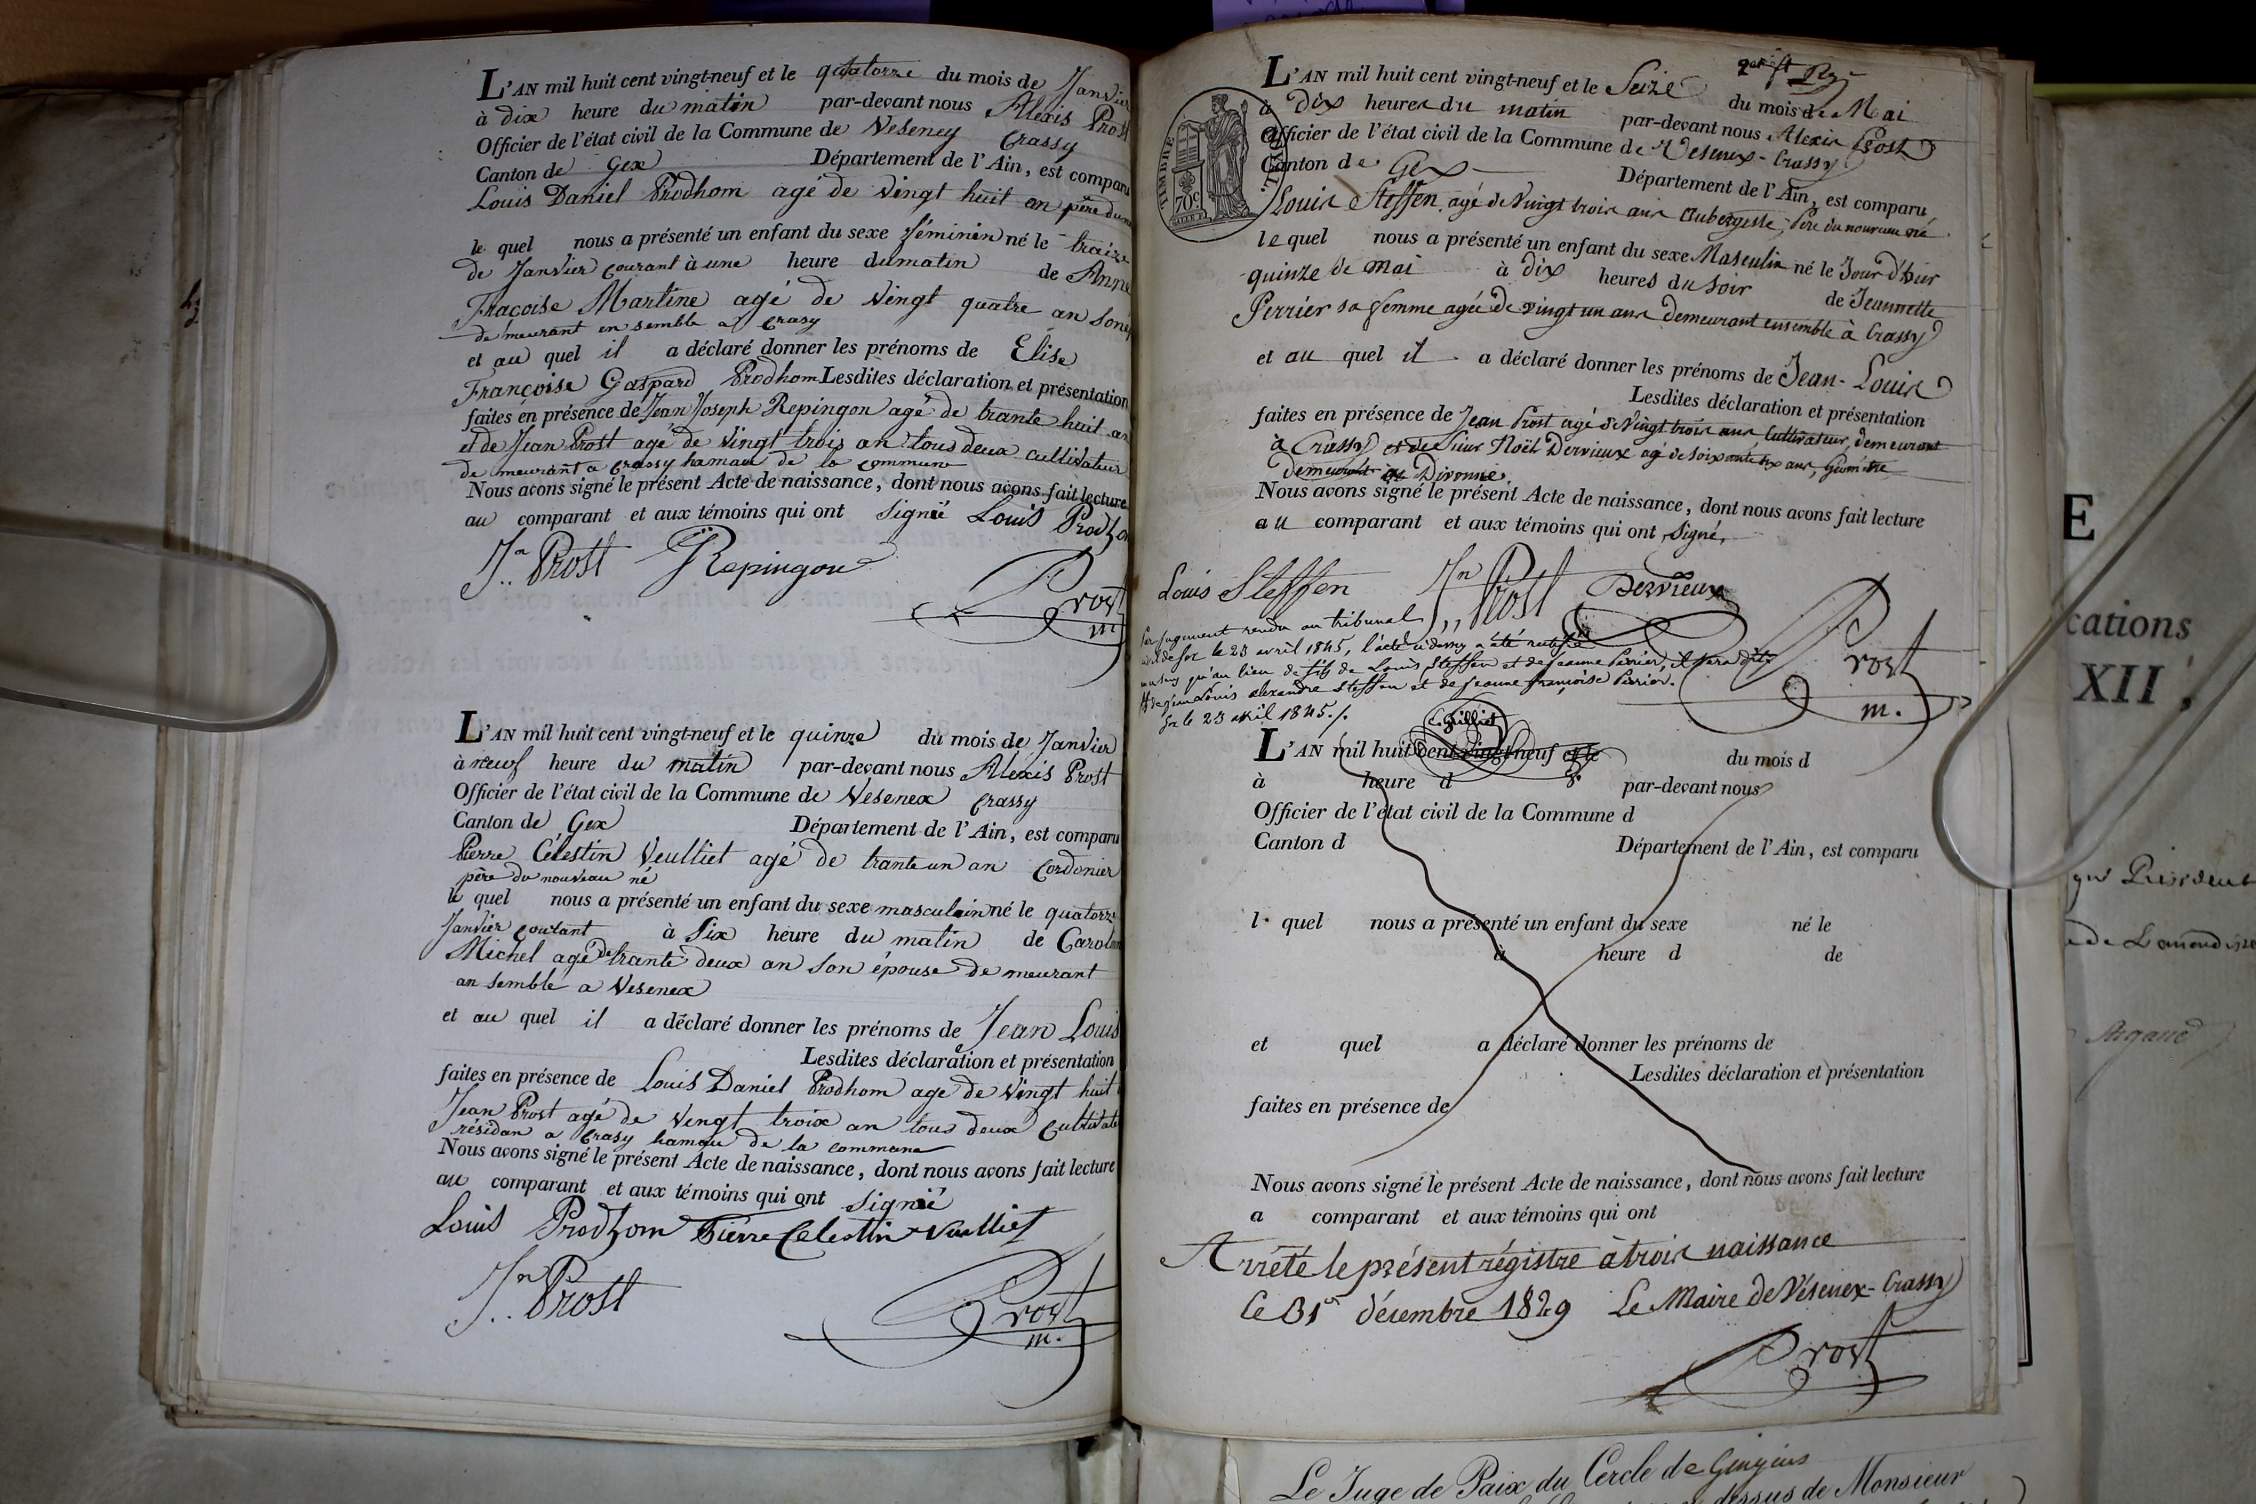 L'AN mil huit cent vingt-neuf et le quatorze du mois de Janvier
à dix heure du matin par-devant nous Alexis Prost
Officier de l'état civil de la Commune de Veseney Crassy
Canton de Gex Département de l'Ain, est comparu
Louis Daniel Prodhom agé de vingt huit an père du
le quel nous a présenté un enfant du sexe féminin né le traize
de Janvier courant à une heure du matin de Anne
Fracoise Martine agé de vingt quatre an son
de meurant en semble a Crasy
et au quel il a déclaré donner les prénoms de Elise
Françoise Gaspard Prodhom Lesdites déclaration et présentation
faites en présence de Jean Joseph Repingon agé de trante huit an
et de Jean Prost agé de vingt trois an tous deux cultivateur
de meurant a Crassy hamau de la commune
Nous avons signé le présent Acte de naissance, dont nous avons fait lecture
au comparant et aux témoins qui ont signié Louis Prodhom
Jn Prost JJRepingon
Prost
m.
L'AN mil huit cent vingt-neuf et le quinze du mois de Janvier
à neuf heure du matin par-devant nous Alexis Prost
Officier de l'état civil de la Commune de Vesenex Crassy
Canton de Gex Département de l'Ain, est comparu
Pierre Célestin Veulliet agé de trante un an Cordonier
père du nouveau né
le quel nous a présenté un enfant du sexe masculain né le quatorze
Janvier courant à Six heure du matin de Caroline
Michel agé de trante deux an son épouse de meurant
an semble a Vesenex
et au quel il a déclaré donner les prénoms de Jean Louis
Lesdites déclaration et présentation
faites en présence de Louis Daniel Prodhom age de vingt huit
Jean Prost agé de vengt troix an tous deux Cultivate
résidan a Crasy hamau de la commune
Nous avons signé le présent Acte de naissance, dont nous avons fait lecture
au comparant et aux témoins qui ont signié
Louis Prodhom Pierre Celestin Vuilliet
Jn Prost
Prost
m.
2er ft Rg
L'AN mil huit cent vingt-neuf et le Seize du mois de Mai
à Dix heures du matin par-devant nous Alexis Prost
Officier de l'état civil de la Commune de Vesenex-Crassy
Canton de Gex Département de l'Ain, est comparu
TIMBRE
70c
Louis Steffen, agé de Vingt trois ans Aubergiste, Père du nouveau né
le quel nous a présenté un enfant du sexe Masculin né le Jour d'hier
quinze de Mai à dix heures du soir de Jeannette
Perrier sa femme agée de vingt un ans demeurant ensemble à Crassy
et au quel il a déclaré donner les prénoms de Jean-Louis
Lesdites déclaration et présentation
faites en présence de Jean Prost agé de Vingt trois ans, Cultivateur, demeurant
à Crassy et de Sieur Noël Dervieux agé de soixante dix ans, Géomètre
demeurant à Divonne.
Nous avons signé le présent Acte de naissance, dont nous avons fait lecture
au comparant et aux témoins qui ont signé,
Louis Steffen Jn Prost Dervieux
Prost
m.
Par jugement rendu au tribunal
civil de Gex le 23 avril 1845, l'acte ci dessus a été rectifié
en ce sens qu'au lieu de fils de Louis Steffen et de Jeanne Perrier, il sera dit
fils de Jean Louis Alexandre Steffen et de Jeanne Françoise Perrier.
Gex le 23 avril 1845./.
L'AN mil huit cent vingt-neuf et le du mois d
à heure d par-devant nous
Officier de l'état civil de la Commune d
Canton d Département de l'Ain, est comparu
l quel nous a présenté un enfant du sexe né le
à heure d de
et quel a déclaré donner les prénoms de
Lesdites déclaration et présentation
faites en présence de
Nous avons signé le présent Acte de naissance, dont nous avons fait lecture
a comparant et aux témoins qui ont
Arrêté le présent régistre à trois naissance
le 31 décembre 1829 Le Maire de Vésenex-Crassy
Prost
E
cations
XII,
Le Juge de Paix du Cercle de Gingins
dessus de Monsieur